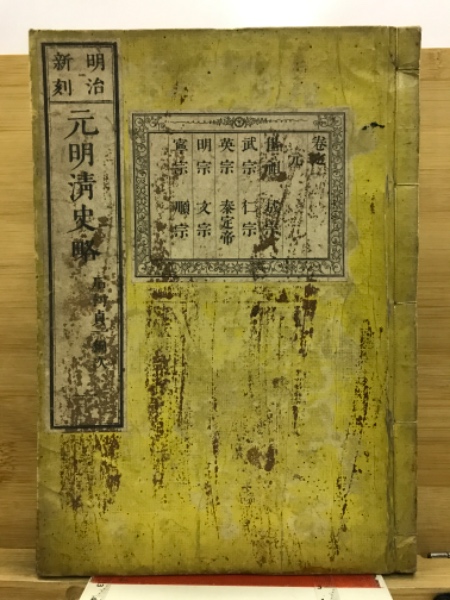 明治
新刻
元明清史略
卷
元
武宗 仁宗
英宗 泰定帝
明宗 文宗
寧宗 順宗